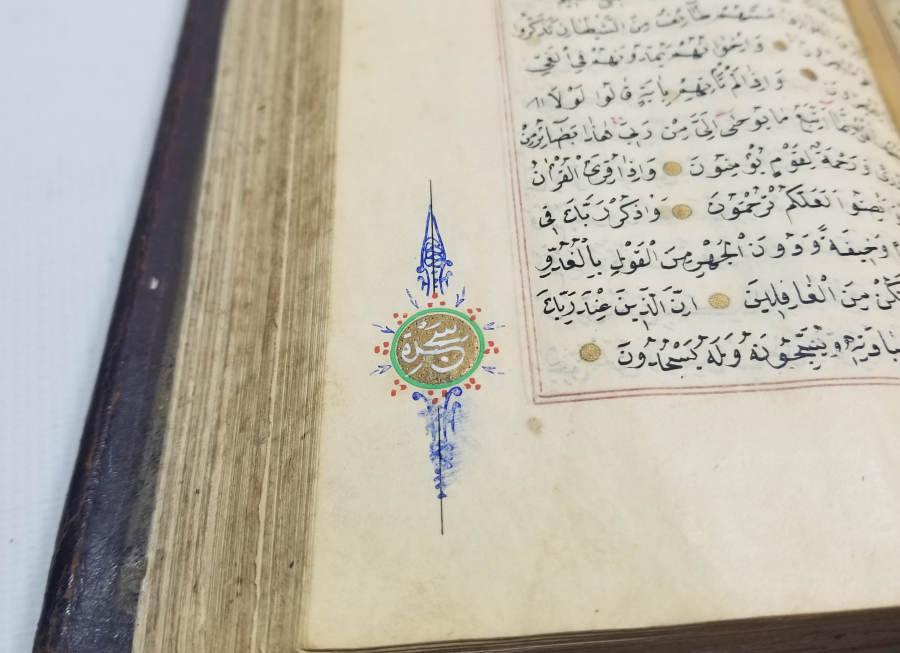 مَسَّهُمْ طَائِفٌ مِنَ الشَّيْطَانِ تَذَكَّرُوا
وَاِخْوَانُهُمْ يَمُدُّونَهُمْ فِي الْغَيِّ
وَاِذَا لَمْ تَأْتِهِمْ بِاٰيَةٍ قَالُوا لَوْلَا
اَتَّبِعُ مَا يُوحٰى اِلَيَّ مِنْ رَبِّي هٰذَا بَصَائِرُ مِنْ
وَرَحْمَةٌ لِقَوْمٍ يُؤْمِنُونَ وَاِذَا قُرِئَ الْقُرْاٰنُ
لَعَلَّكُمْ تُرْحَمُونَ وَاذْكُرْ رَبَّكَ فِي
وَخِيفَةً وَدُونَ الْجَهْرِ مِنَ الْقَوْلِ بِالْغُدُوِّ
تَكُنْ مِنَ الْغَافِلِينَ اِنَّ الَّذِينَ عِنْدَ رَبِّكَ
وَيُسَبِّحُونَهُ وَلَهُ يَسْجُدُونَ
سجدة